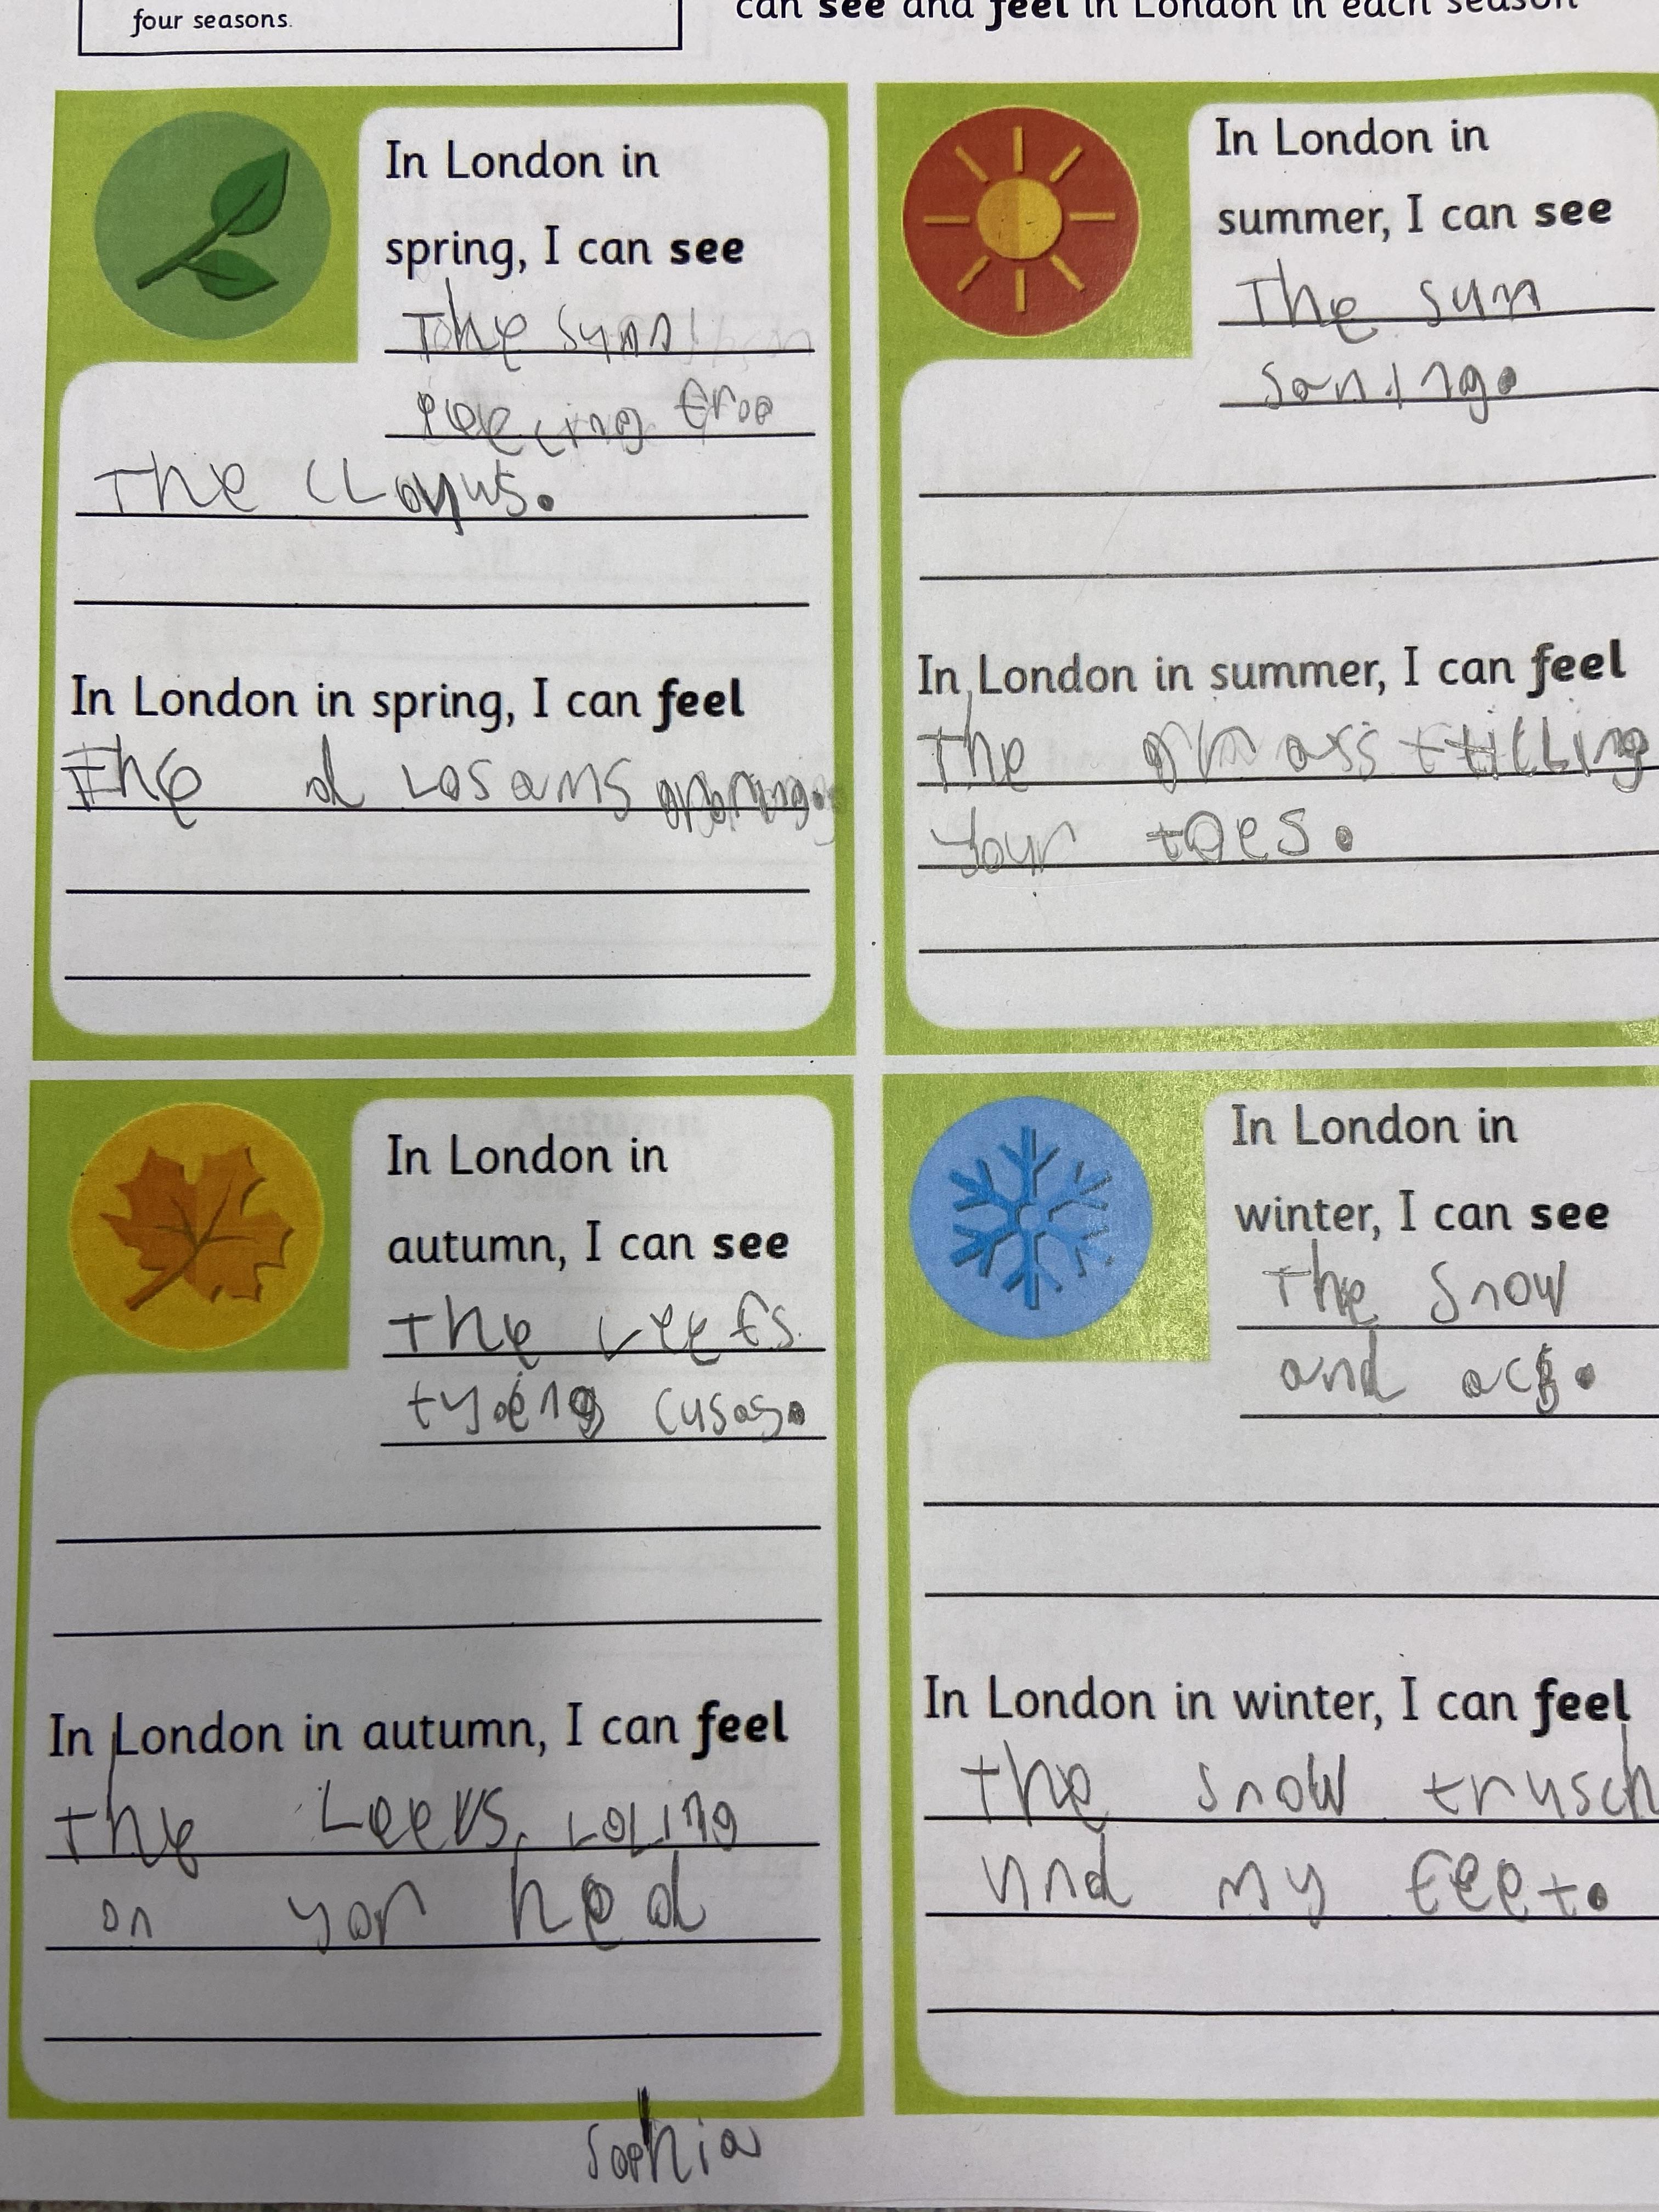 four seasons.
can see and feel in London in each season
In London in
spring, I can see
The sun
peecing froo
The CLowds.
In London in spring, I can feel
The d Losams opaning.
In London in
summer, I can see
The sun
saning.
In London in summer, I can feel
The grass tilling
your toes.
In London in
autumn, I can see
The Leefs
tying cusas.
In London in autumn, I can feel
the Leevs Loling
on yor hed
In London in
winter, I can see
The Snow
and acs.
In London in winter, I can feel
the snow trusch
und my feet.
Sophia